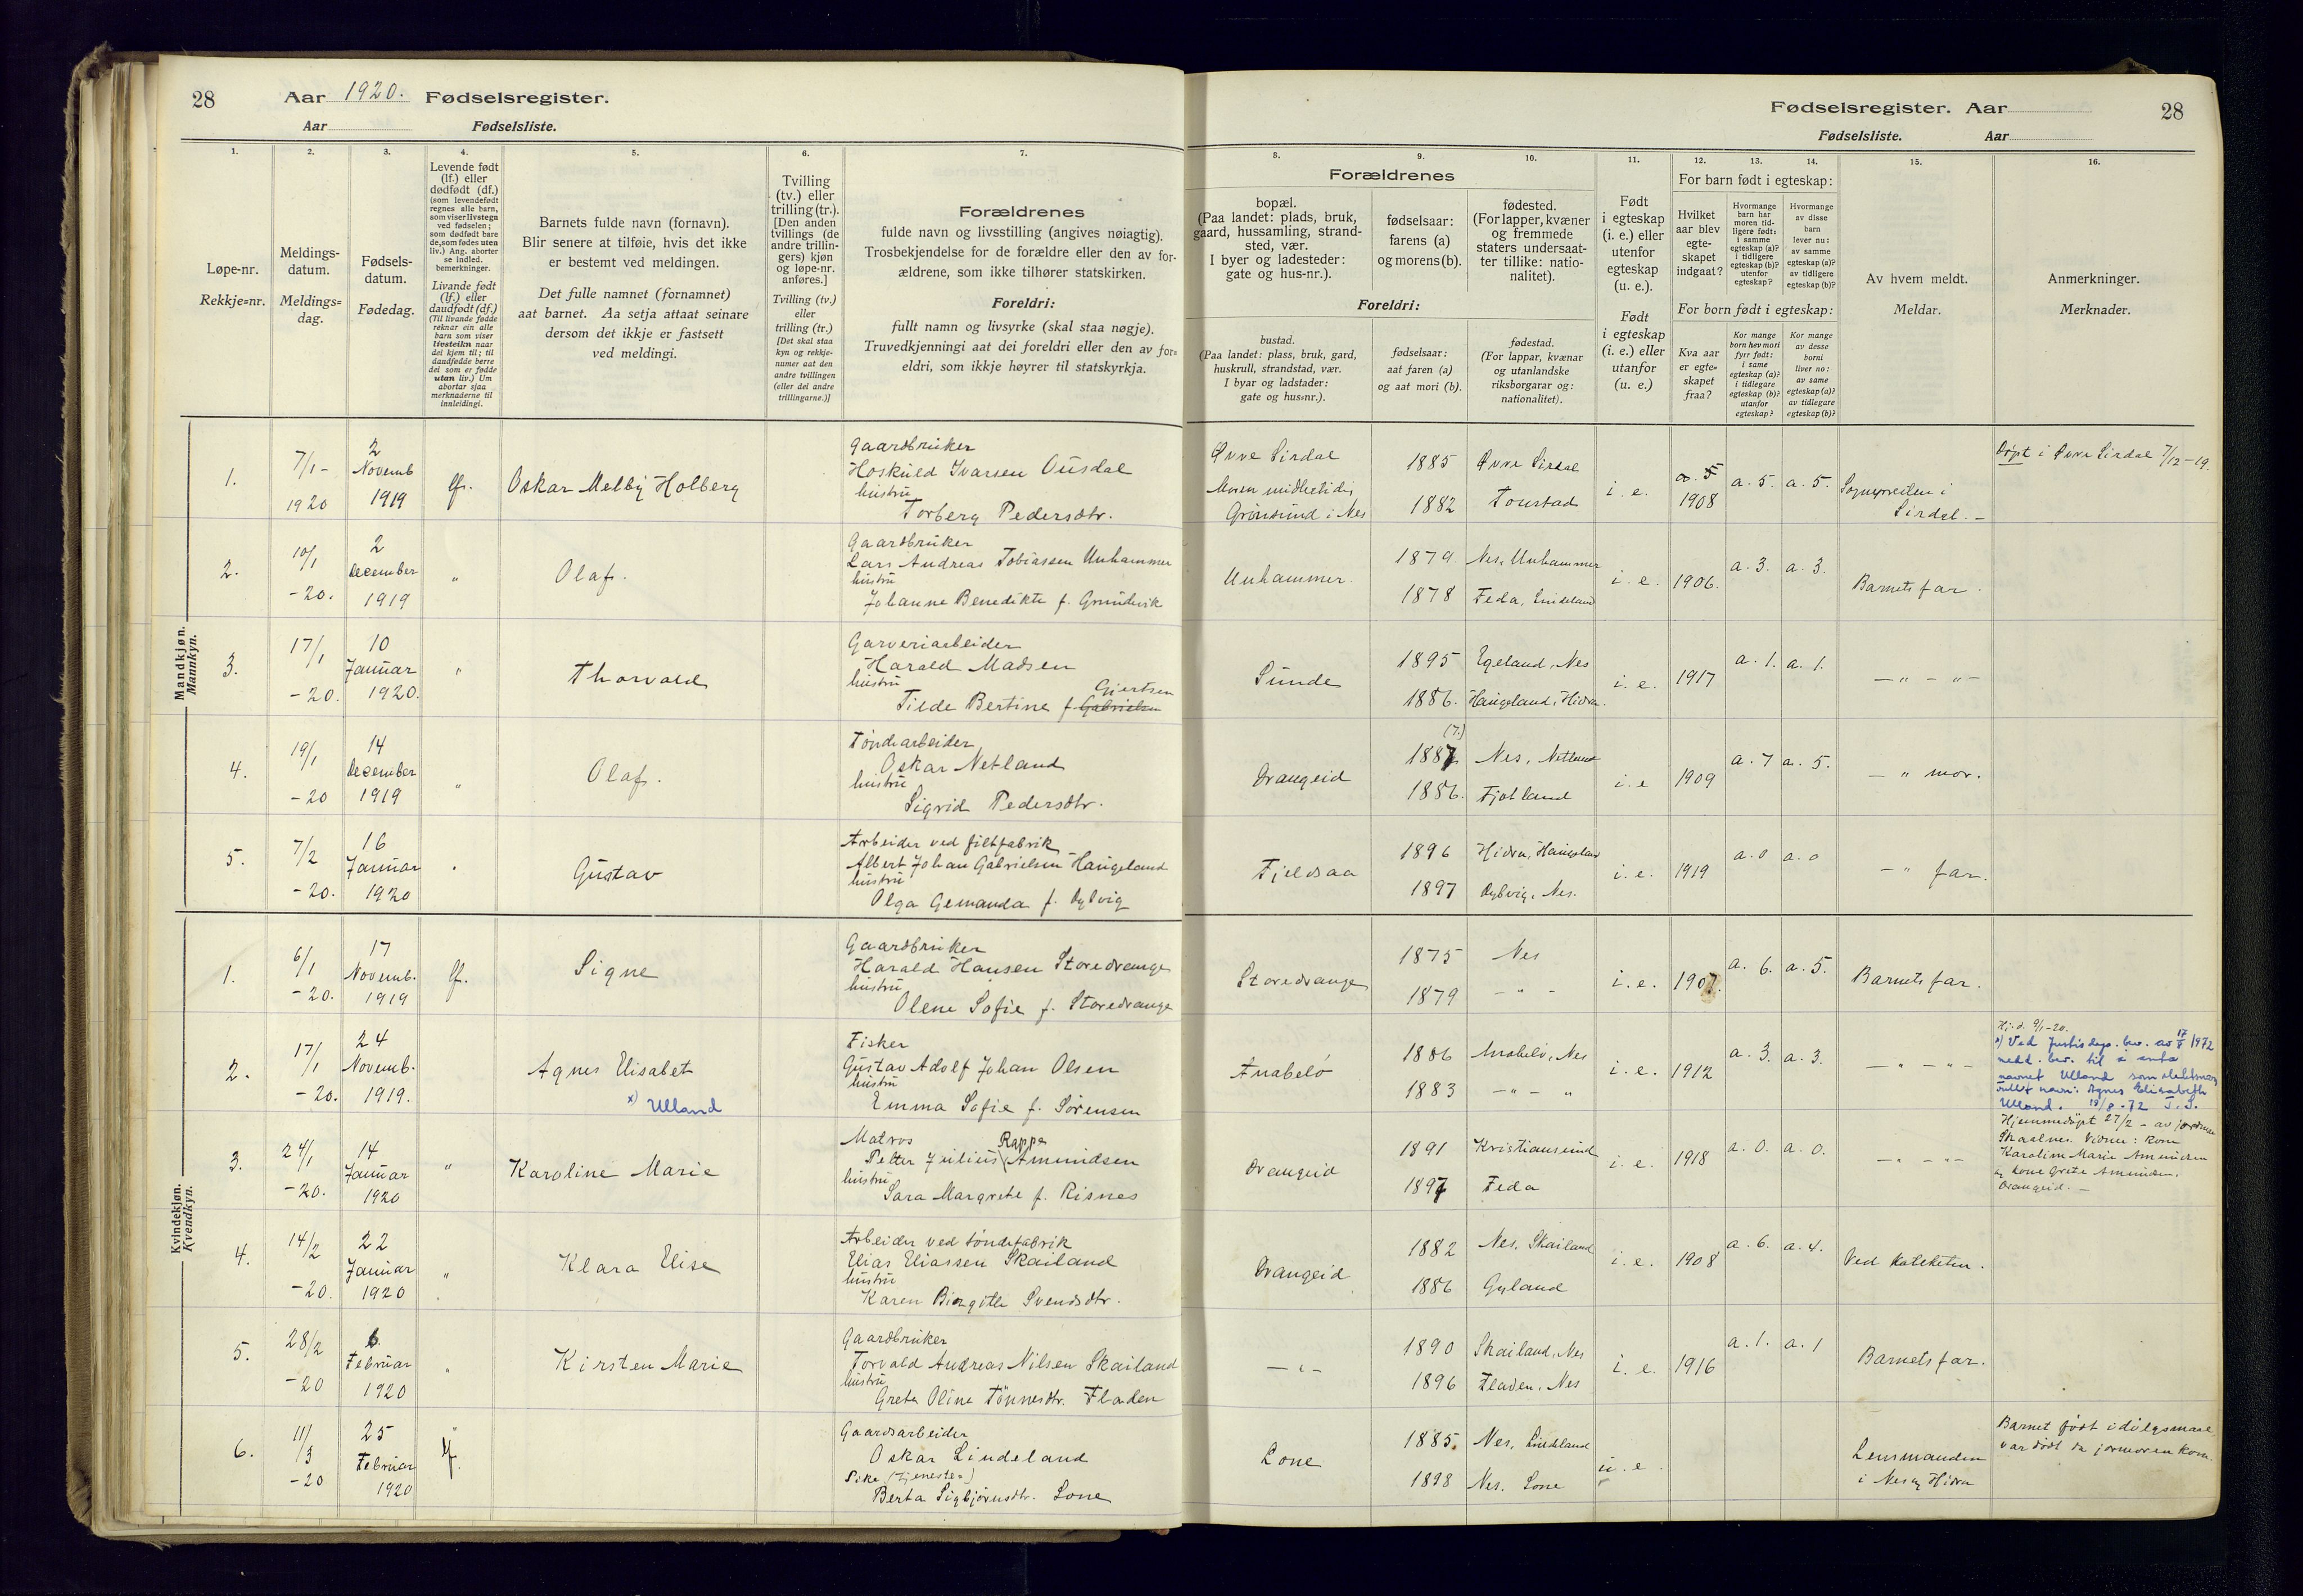 28
Aar 1920. Fødselsregister.
Aar Fødselsliste.
Fødselsregister. Aar
28
Fødselsliste. Aar
1.
Løpe-nr.
Rekkje=nr.
2.
Meldings-
datum.
Meldings=
dag.
3.
Fødsels-
datum.
Fødedag.
4.
Levende født
(lf.) eller
dødfødt (df.)
(som levendefødt
regnes alle barn,
som viser livstegn
ved fødselen;
som dødfødt bare
de, som fødes uten
liv.) Ang. aborter
se indled.
bemerkninger.
Livande født
(lf.) eller
daudfødt (df.)
(Til livande fødde
reknar ein alle
barn som viser
livsteikn naar
dei kjem til; til
daudfødde berre
dei som er fødde
utan liv.) Um
abortar sjaa
merknaderne til
innleidingi.
5.
Barnets fulde navn (fornavn).
Blir senere at tilføie, hvis det ikke
er bestemt ved meldingen.
Det fulle namnet (fornamnet)
aat barnet. Aa setja attaat seinare
dersom det ikkje er fastsett
ved meldingi.
6.
Tvilling
(tv.) eller
trilling (tr.).
[Den anden
tvillings (de
andre trillin-
gers) kjøn
og løpe-nr.
anføres.]
Tvilling (tv.)
eller
trilling (tr.)
[Det skal staa
kyn og rekkje-
numer aat den
andre tvillingen
(eller dei andre
trillingarne.)]
7.
Forældrenes
fulde navn og livsstilling (angives nøiagtig).
Trosbekjendelse for de forældre eller den av for-
ældrene, som ikke tilhører statskirken.
Foreldri:
fullt namn og livsyrke (skal staa nøgje).
Truvedkjenningi aat dei foreldri eller den av for=
eldri, som ikkje høyrer til statskyrkja.
Forældrenes
8.
bopæl.
(Paa landet: plads, bruk,
gaard, hussamling, strand-
sted, vær.
I byer og ladesteder:
gate og hus-nr.).
9.
fødselsaar:
farens (a)
og morens (b).
10.
fødested.
(For lapper, kvæner
og fremmede
staters undersaat-
ter tillike: natio-
nalitet).
Foreldri:
bustad.
(Paa landet: plass, bruk, gard,
huskrull, strandstad, vær.
I byar og ladstader:
gate og hus=nr.).
fødselsaar:
aat faren (a)
og aat mori (b).
fødestad.
(For lappar, kvænar
og utanlandske
riksborgarar og:
nationalitet).
11.
Født
i egteskap
(i. e.) eller
utenfor
egteskap
(u. e.).
Født
i egteskap
(i. e.) eller
utanfor
(u. e.)
12. 13. 14.
For barn født i egteskap:
Hvilket
aar blev
egte-
skapet
indgaat?
Hvormange
barn har
moren tid-
ligere født:
i samme
egteskap (a)?
i tidligere
egteskap (b)?
utenfor
egteskap?
Hvormange
av disse
barn
lever nu:
av samme
egteskap (a)?
av tidligere
egteskap (b)?
For born født i egteskap:
Kva aar
er egte=
skapet
fraa?
Kor mange
born hev mori
fyrr født:
i same
egteskap (a)?
i tidlegare
egteskap (b)?
utanfor
egteskap?
Kor mange
av desse
borni
liver no:
av same
egteskap (a)?
av tidlegare
egteskap (b)?
15.
Av hvem meldt.
Meldar.
16.
Anmerkninger.
Merknader.
Mandkjøn.
Mannkyn.
1. 7/1- 1920
2 Novemb 1919
lf. Oskar Melby Holberg
Gaardbruker
Hoskuld Ivarsen Ousdal
hustru
Torberg Pedersdtr.
Øvre Sirdal
Moren midletidig
Grønsund i Nes
1885 Øvre Sirdal
1882 Tonstad
i. e. 1908 a. 5. a. 5.
Sognepresten i
Sirdal. -
Døpt i Øvre Sirdal 7/12-19.
2. 10/1 -20.
2 December 1919
" Olaf.
Gaardbruker
Lars Andreas Tobiassen Unhammer
hustru
Johanne Benedikte f. Grundvik
Unhammer.
1879. Nes, Unhammer
1878 Feda, Lindeland
i. e. 1906. a. 3. a. 3.
Barnets far.
3. 17/1 -20.
10 Januar 1920.
" Thorvald
Garveriarbeider
Harald Madsen
hustru Gjertsen
Tilde Bertine f. Gabrielsen
Sunde
1895 Egeland, Nes
1886. Haugeland, Hidra.
i. e. 1917 a. 1. a. 1.
- " - " -
4. 19/1 -20
14 December 1919
" Olaf.
Tøndearbeider
Oskar Netland
hustru
Sigrid Pedersdtr.
Drangeid
(7.)
1887 Nes, Netland
1886. Fjotland
i. e 1909 a. 7 a. 5.
- " mor.
5. 7/2 -20.
16 Januar 1920
" Gustav
Arbeider ved filtfabrik
Albert Johan Gabrielsen Haugeland
hustru
Olga Gemanda f. Dybvig
Fjeldsaa
1896 Hidra, Haugeland
1897 Dybvig, Nes.
i. e. 1919 a. 0 a. 0
- " far.
Kvindekjøn.
Kvendkyn.
1. 6/1 -20.
17 Novemb. 1919
lf. Signe
Gaardbruker
Harald Hansen Storedrange
hustru
Olene Sofie f. Storedrange
Storedrange
1875 Nes
1879 - " -
i. e. 1907. a. 6. a. 5.
Barnets far.
2. 17/1 -20.
24 Novemb. 1919.
Agnes Elisabet
x) Ulland
Fisker
Gustav Adolf Johan Olsen
hustru
Emma Sofie f. Sørensen
Anabelø
1886 Anabelø, Nes
1883 - " - "
i. e. 1912 a. 3. a. 3.
- " - " -
Hj. d. 9/1-20.
x) Ved Justisdep. bev. av 17/8 1972
medd. bev. til å anta
navnet Ulland som slektsnavn
fullt navn: Agnes Elisabeth
Ulland. 18/8-72 T.S.
3. 24/1 -20.
14 Januar 1920
" Karoline Marie
Matros Rappe
Petter Julius Amundsen
hustru
Sara Margrete f. Risnes
Drangeid
1891 Kristiansund
1897 Feda
i. e. 1918 a. 0. a. 0.
- " - " -
Hjemmedøpt 27/2 - av jordmor
Skaalnes. Vidner: Kone
Karoline Marie Amundsen
og kone Grete Amundsen.
Drangeid. -
4. 14/2 -20.
22 Januar 1920
" Klara Elise
Arbeider ved tøndefabrik
Elias Eliassen Skailand
hustru
Karen Birgitte Svendsdtr.
Drangeid
1882 Nes, Skailand
1886 Gyland
i. e. 1908 a. 6. a. 4.
Ved kateketen.
5. 28/2 -20
6. Februar 1920
" Kirsten Marie
Gaardbruker
Torvald Andreas Nilsen Skailand
hustru
Grete Oline Tønnesdtr. Fladen
- " -
1890 Skailand, Nes
1896 Fladen, Nes
i. e. 1916 a. 1. a. 1
Barnets far.
6. 11/3 -20
25 Februar 1920
Gaardsarbeider
Oskar Lindeland
Pike (Tjeneste=)
Berta Sigbjørnsdtr. Lone
Lone
1885. Nes, Lindeland
1898 Nes. Lone
u. e.
Lensmanden
i Nes og Hidra
Barnet født i dølgsmaal,
var dødt da jormoren kom.